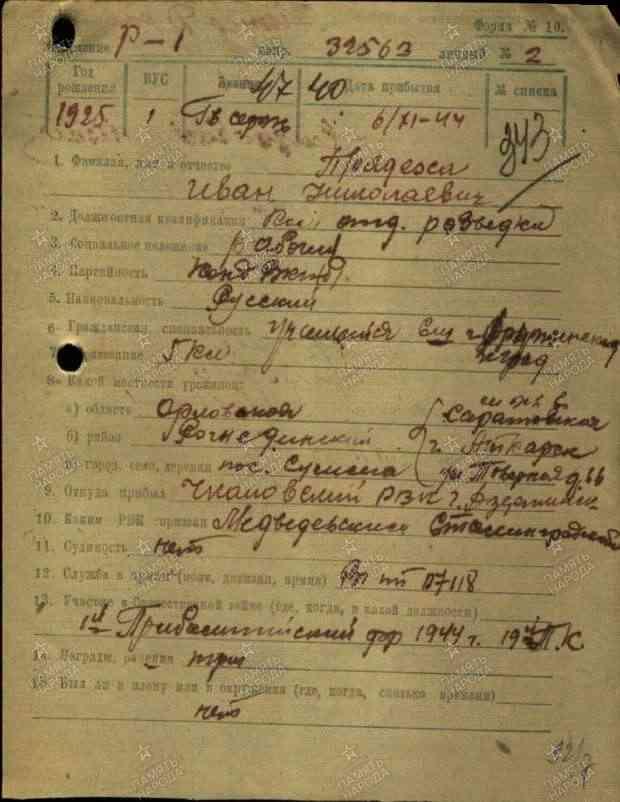 Форма № 10.
Р-1 32563 личный № 2
Год рождения ВУС Звание 47 40 Дата прибытия № списка
1925 1 Гв серж 6/XI-44 343
1. Фамилия, имя и отчество
Иван Николаевич
2. Должностная квалификация отд. разведки
3. Социальное положение рабочий
4. Партийность Канд ВКПб
5. Национальность Русский
6. Гражданская специальность
7. 5 кл
8. Какой местности уроженец:
а) область Орловская Саратовская
б) район Рогнединский г. Аткарск
в) город, село, деревня пос. д. 66
9. Откуда прибыл Чкаловский РВК г.
10. Каким РВК призван Медведевским Сталинградской
11. Судимость нет
12. Служба в армии (полк, дивизия, армия) пп 07118
13. Участие в Отечественной войне (где, когда, в какой должности)
1й Прибалтийский фр 1944 г.
14. Награды, ранения
15. Был ли в плену или в окружении (где, когда, сколько времени)
нет
ПАМЯТЬ НАРОДА